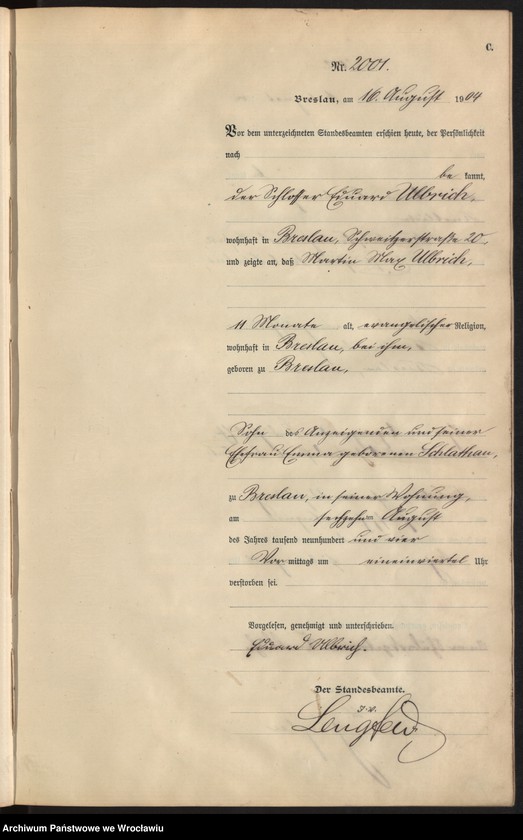 C.
Nr. 2001.
Breslau, am 16. August 1904
Vor dem unterzeichneten Standesbeamten erschien heute, der Persönlichkeit
nach
be kannt,
der Schlosser Eduard Ulbrich,
wohnhaft in Breslau, Schweitzerstraße 20,
und zeigte an, daß Martin Max Ulbrich,
11 Monate alt, evangelischer Religion,
wohnhaft in Breslau, bei ihm,
geboren zu Breslau,
Sohn des Anzeigenden und seiner
Ehefrau Emma geborenen Schlathau,
zu Breslau, in seiner Wohnung,
am sechzehnten August
des Jahres tausend neunhundert und vier
Vor mittags um eineinviertel Uhr
verstorben sei.
Vorgelesen, genehmigt und unterschrieben.
Eduard Ulbrich.
Der Standesbeamte.
J. V.
Lengfeld
Archiwum Państwowe we Wrocławiu